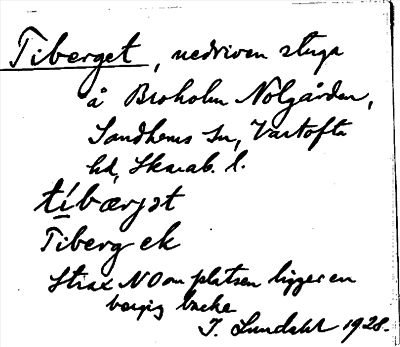 Tiberget, nedriven stuga
å Broholm Nolgården,
Sandhems sn, Vartofta
hd, Skarab. l.
tíbærjət
Tiberg ek
Strax NO om platsen ligger en
bergig backe
I. Lundahl 1928.